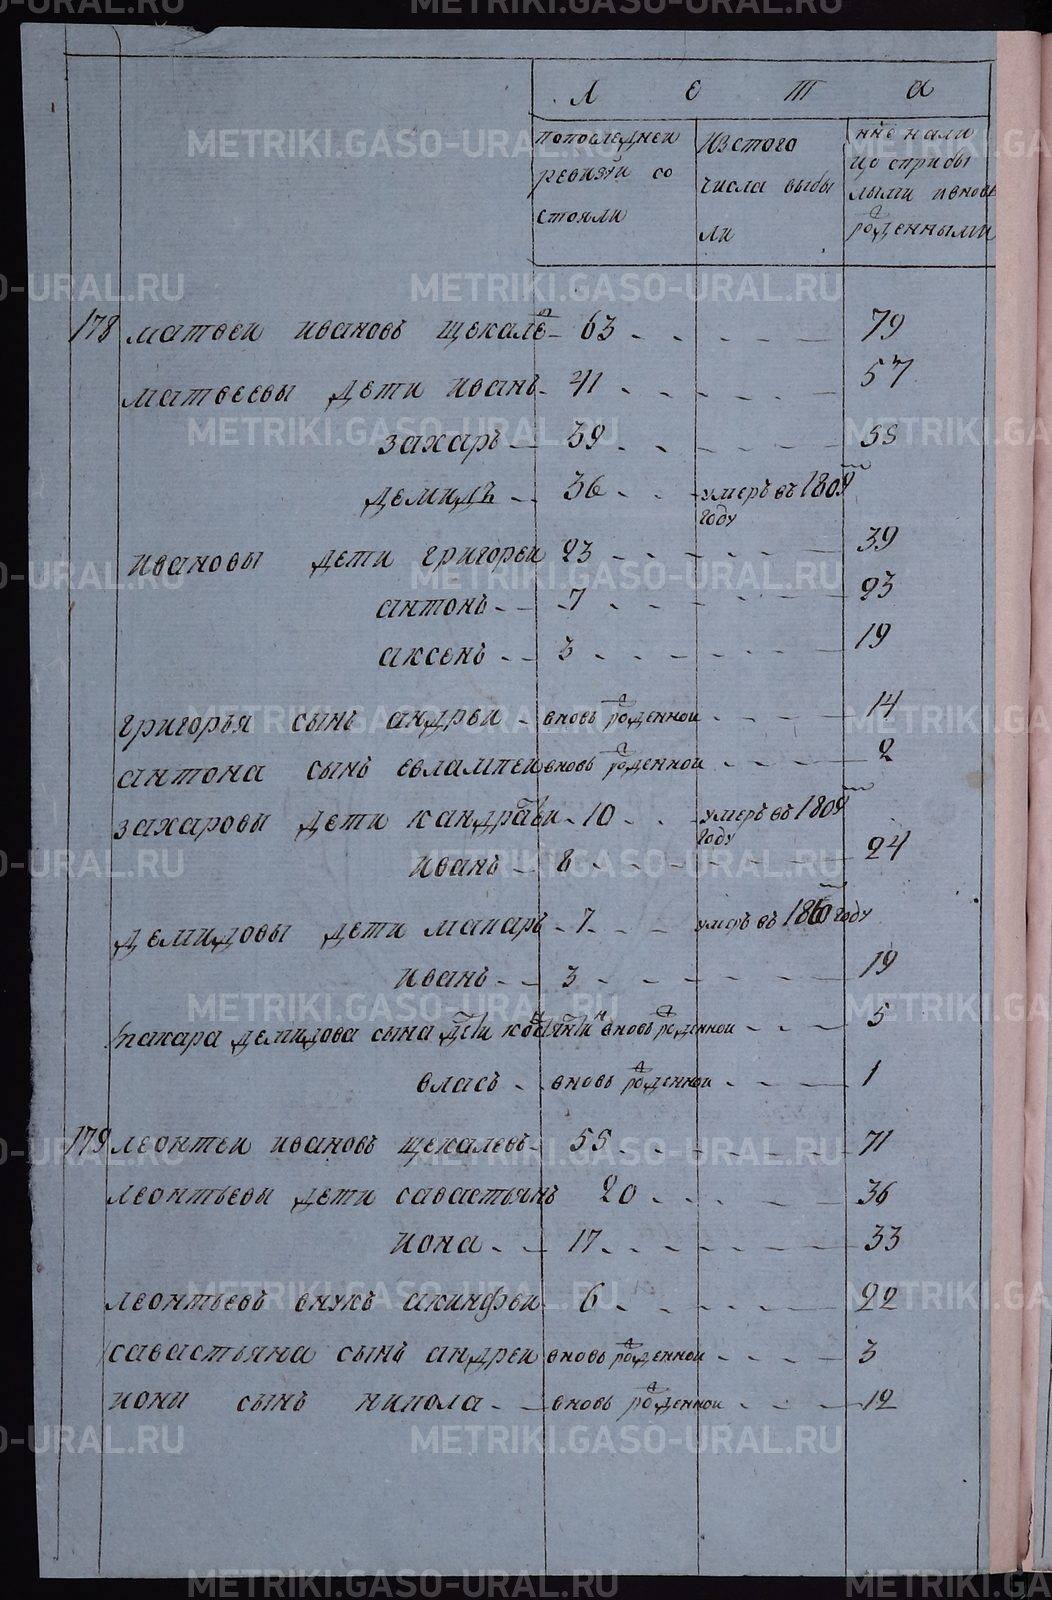 Л е т а
попоследней ревизiи со стояли
Изстого числа выбы ли
ныне нали цо сприбы лыми ивновь роденными
178 матвеи ивановъ щекалевъ 63 79
матвеевы дети иванъ 41 57
захаръ 39 55
демидъ 36 умеръ въ 1809м году
ивановы дети григореи 23 39
антонъ 7 23
аксенъ 3 19
григорья сынъ андреи вновь роденнои 14
антона сынъ евлампеи вновь роденнои 2
захаровы дети кандратеи 10 умеръ въ 1809м году
иванъ 8 24
демидовы дети макаръ 7 умеръ въ году
иванъ 3 19
макара демидова сына дети вновь роденнои 5
власъ вновь роденнои 1
179 леонтеи ивановъ щекалевъ 55 71
леонтьевы дети савастьянъ 20 36
иона 17 33
леонтьевъ внукъ акинфеи 6 22
савастьяна сынъ андреи вновь роденнои 3
иони сынъ никола вновь роденнои 12
METRIKI.GASO-URAL.RU